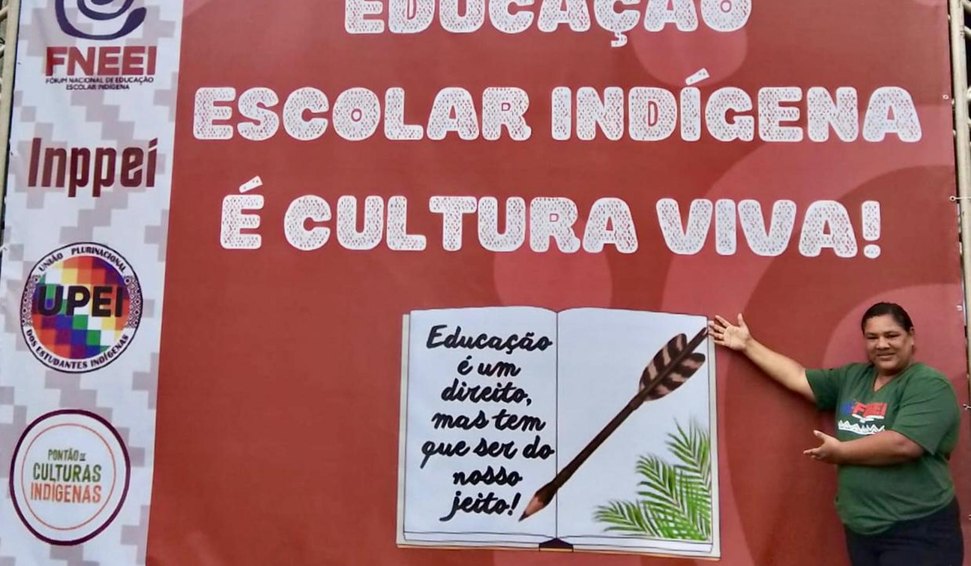 FNEEI
FÓRUM NACIONAL DE EDUCAÇÃO
ESCOLAR INDÍGENA
Inppei
UNIÃO PLURINACIONAL
UPEI
DOS ESTUDANTES INDÍGENAS
PONTÃO DE
CULTURAS
INDÍGENAS
EDUCAÇÃO
ESCOLAR INDÍGENA
É CULTURA VIVA!
Educação
é um
direito,
mas tem
que ser do
nosso
jeito!
FNEEI